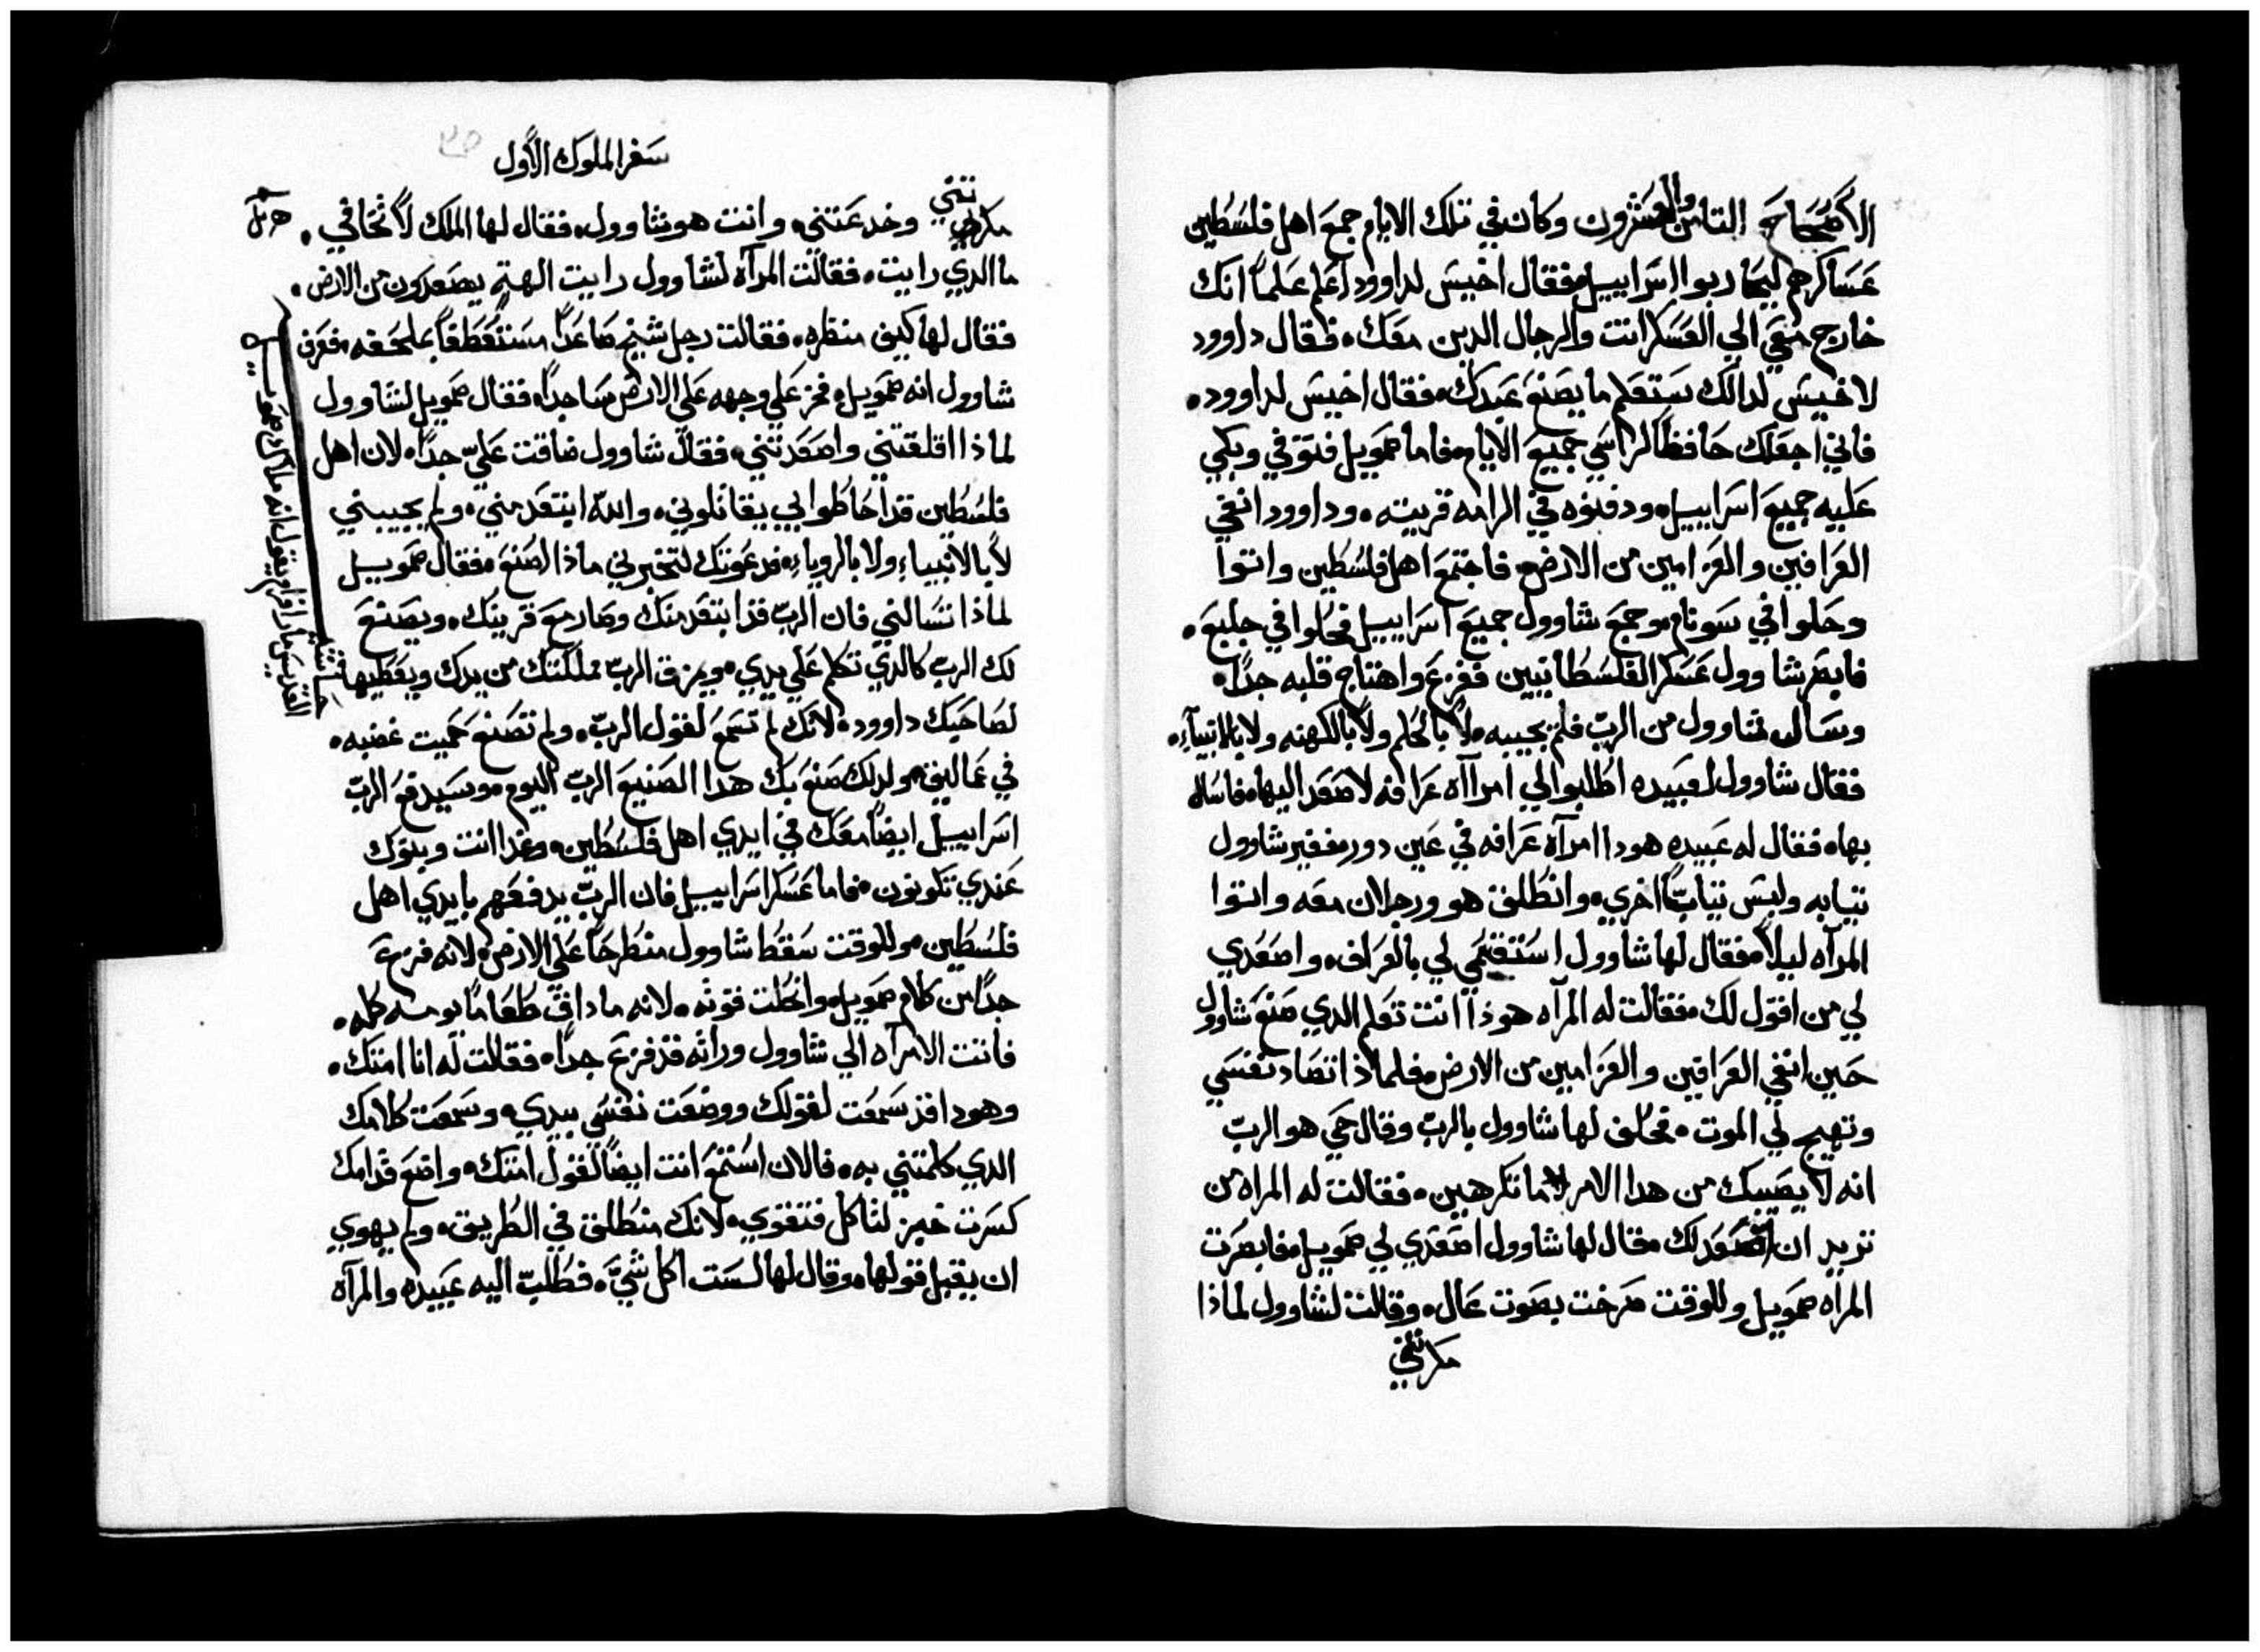 الأصحاح الثامن والعشرون وكان في تلك الايام جمع اهل فلسطين
عساكرهم ليحاربوا اسراييل فقال اخيس لداوود اعلم علماً انك
خارج معي الي العسكر انت والرجال الدين معك. فقال داوود
لاخيس لدالك ستعلم ما يصنع عبدك. فقال اخيس لداوود.
فاني اجعلك حافظاً لراسي جميع الايام. فاما صمويل فتوفي وبكي
عليه جميع اسراييل. ودفنوه في الرامه قريته. وداوود انفي
العرافين والعزامين من الارض. فاجتمع اهل فلسطين واتوا
وحلوا في سونام. وجمع شاوول جميع اسراييل فحلوا في جلبع.
فابصر شاوول عسكر الفلسطانيين ففزع واهتاج قلبه جداً.
وسال شاوول من الرب فلم يجيبه لا بالحلم ولا بالكهنه ولا بالانبيآء.
فقال شاوول لعبيده اطلبوا لي امراآه عرافه لاصعد اليها فاسال
بها. فقال له عبيده هودا امرآه عرافه في عين دور. فغير شاوول
ثيابه ولبس ثياباً اخري. وانطلق هو ورجلان معه واتوا
المرآه ليلاً. فقال لها شاوول استقسمي لي بالعراف. واصعدي
لي من اقول لك. فقالت له المرآه هوذا انت تعلم الدي صنع شاوول
حين انفي العرافين والعزامين من الارض. فلماذا تصاد نفسي
وتهيج لي الموت. فحلف لها شاوول بالرب وقال حي هو الرب
انه لا يصيبك من هدا الامر ما تكرهين. فقالت له المراه من
تريد ان اصعد لك. قال لها شاوول اصعدي لي صمويل. فابصرت
المراه صمويل وللوقت صرخت بصوت عال. وقالت لشاوول لماذا
مكرتني
سفر الملوك الأول
٣٥
مكرتني وخدعتني. وانت هو شاوول. فقال لها الملك لا تخافي.
ما الدي رايت. فقالت المرآه لشاوول رايت الهة يصعدون من الارض.
فقال لها كيف منظره. فقالت رجل شيخ صاعداً مستقطفاً بملحفه. فعرف
شاوول انه صمويل. فخر علي وجهه علي الارض ساجداً. فقال صمويل لشاوول
لماذا اقلقتني واصعدتني. فقال شاوول ضاقت عليّ جداً. لان اهل
فلسطين قد احاطوا بي يقاتلوني. والله ابتعد مني. ولم يجيبني
لا بالانبياء ولا بالروياء. فدعوتك لتخبرني ماذا اصنع. فقال صمويل
لماذا تسالني فان الرب قد ابتعد منك وصار مع قريبك. ويصنع
لك الرب كالدي تكلم علي يدي. ويمزق الرب مملكتك من يدك ويعطيها
لصاحبك داوود. لانك لم تسمع لقول الرب. ولم تصنع حميت غضبه.
في عماليق. ولدلك صنع بك هدا الصنيع الرب اليوم. وسيدفع الرب
اسراييل ايضاً معك في ايدي اهل فلسطين. وغدا انت وبنوك
عندي تكونون. فاما عسكر اسراييل فان الرب يدفعهم بايدي اهل
فلسطين. وللوقت سقط شاوول منطرحاً علي الارض. لانه فزع
جداً من كلام صمويل. وانحطت قوته. لانه ما داق طعاماً يومه كله.
فاتت الامرآه الي شاوول وراته قد فزع جداً. فقالت له انا امتك.
وهودا قد سمعت لقولك ووضعت نفسي بيدي. وسمعت كلامك
الدي كلمتني به. فالان استمع انت ايضاً لقول امتك. واضع قدامك
كسرت خبز لتاكل فتقوي. لانك منطلق في الطريق. ولم يهوي
ان يقبل قولها. وقال لها لست اكل شيء. فطلب اليه عبيده والمرآه
حاشيه
القديس مار افرام يقول انه ملاك